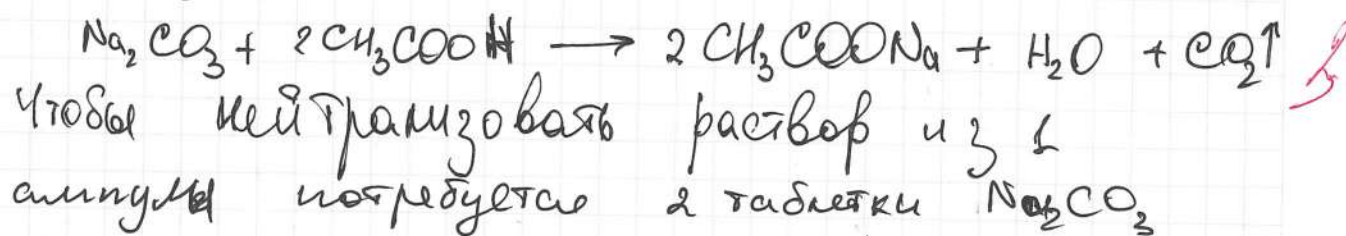 Na₂CO₃ + 2CH₃COOH → 2CH₃COONa + H₂O + CO₂↑
Чтобы нейтрализовать раствор из 1
ампулы потребуется 2 таблетки Na₂CO₃